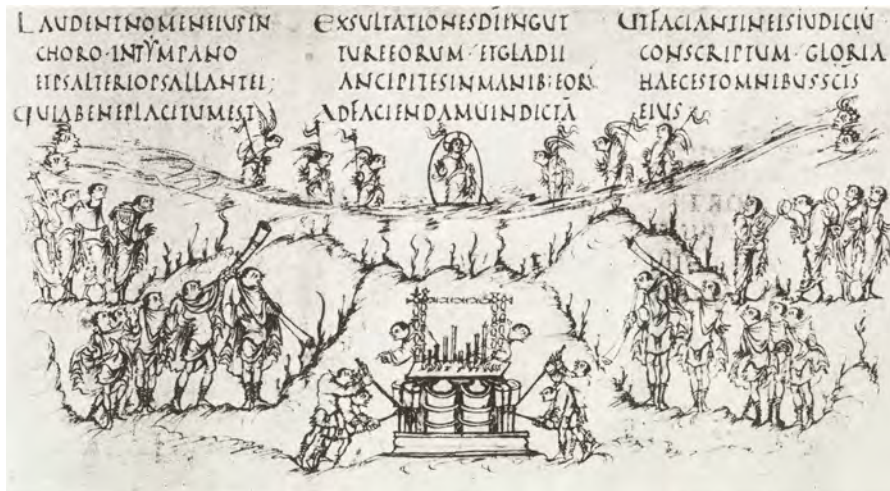 LAUDENTNOMENEIUSIN
CHORO·INTYMPANO
ETPSALTERIOPSALLANTEI;
QUIABENEPLACITUMEST
EXSULTATIONESDĪINGUT
TUREEORUM·ETGLADII
ANCIPITESINMANIB:EORŪ
ADFACIENDAMUINDICTĀ
UTFACIANTINEISIUDICIŪ
CONSCRIPTUM·GLORIA
HAECESTOMNIBUSSCĪS
EIUS